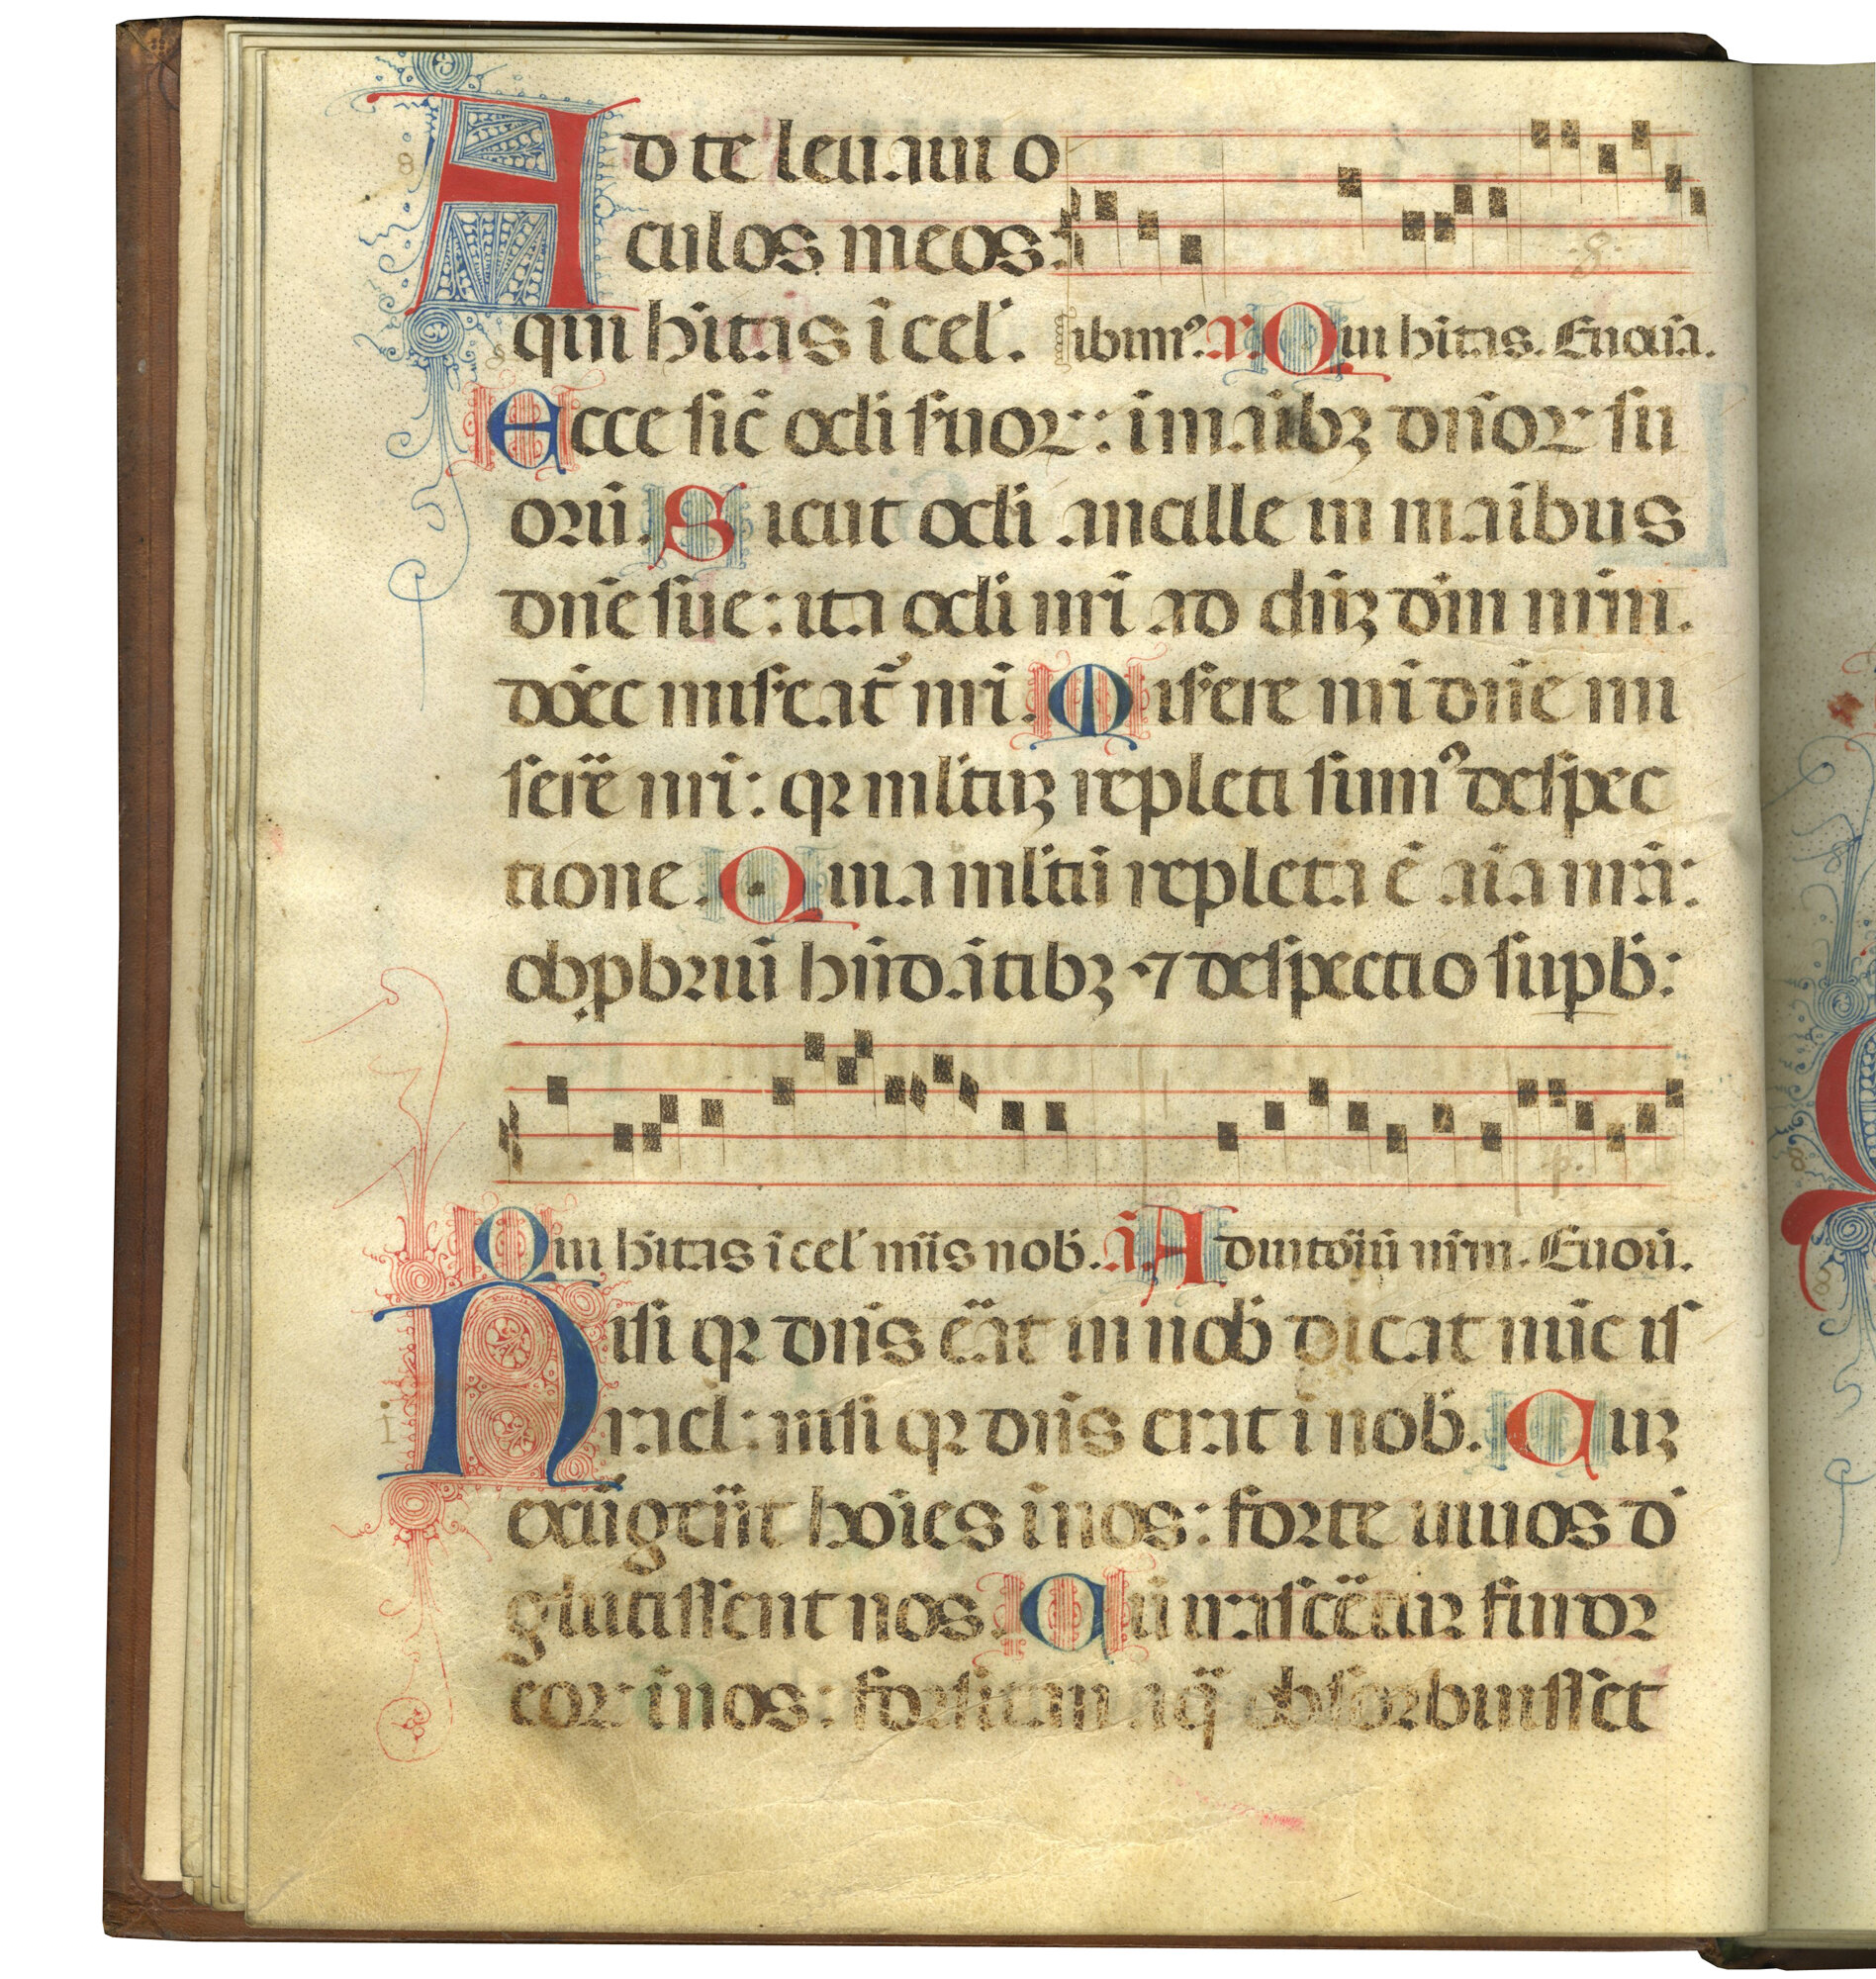 Ad te leuaui o
culos meos:
qui hitas i cel'. ibim9. a. Qui hitas. Euouā.
Ecce sic̄ ocli s'uoꝝ: i māibꝫ dn̄oꝝ su
oꝛū. Sicut ocli ancille in māibus
dn̄e sue: ita ocli nr̄i ad dn̄ꝫ dm̄ nr̄m.
donec mis'eat᷑ nr̄i. Mis'ere nr̄i dn̄e mi
sere nr̄i: qꝛ ml'tuꝫ repleti sum9 despec
tione. Quia ml'tū repleta ē aīa nr̄a:
obꝓbꝛiū hn̄dātibꝫ ⁊ despectio suꝑb̄:
Qui hitas i cel' mis nob̄. ā. Adiutoꝛiū nr̄m. Euoū.
Nisi qꝛ dn̄s erat in nob̄ dicat nūc is
rael: nisi qꝛ dn̄s erat i nob̄. Cuꝫ
exurgerēt hoīes i nos: foꝛte uiuos d'
glutissent nos. Cū irascēetur furoꝛ
eoꝝ i nos: foꝛsitan aq̄ obsoꝛbuisset